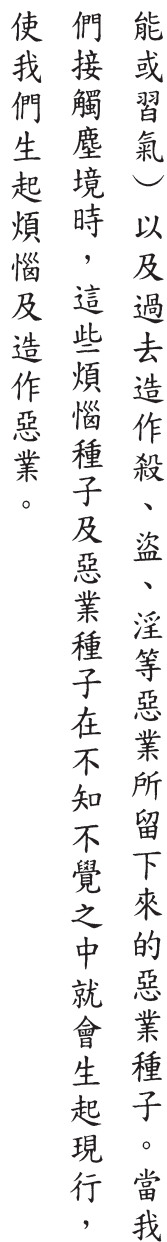 能或習氣）以及過去造作殺、盜、淫等惡業所留下來的惡業種子。當我
們接觸塵境時，這些煩惱種子及惡業種子在不知不覺之中就會生起現行，
使我們生起煩惱及造作惡業。